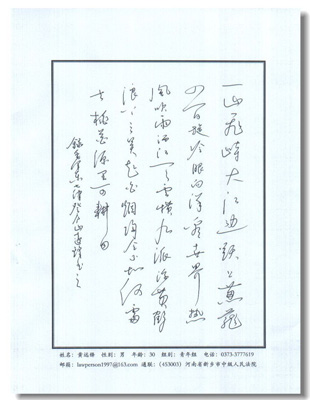 一山飛峙大江边跃上葱蘢
四百旋冷眼向洋看世界热
風吹雨洒江天雲横九派浮黄鹤
浪下三吴起白烟陶令不知何處
去桃花源里可耕田
録毛泽东七律登庐山
姓名：黄远锋 性别：男 年龄：30 组别：青年组 电话：0373-3777619
邮箱：lawperson1997@163.com 通联：(453003) 河南省新乡市中级人民法院